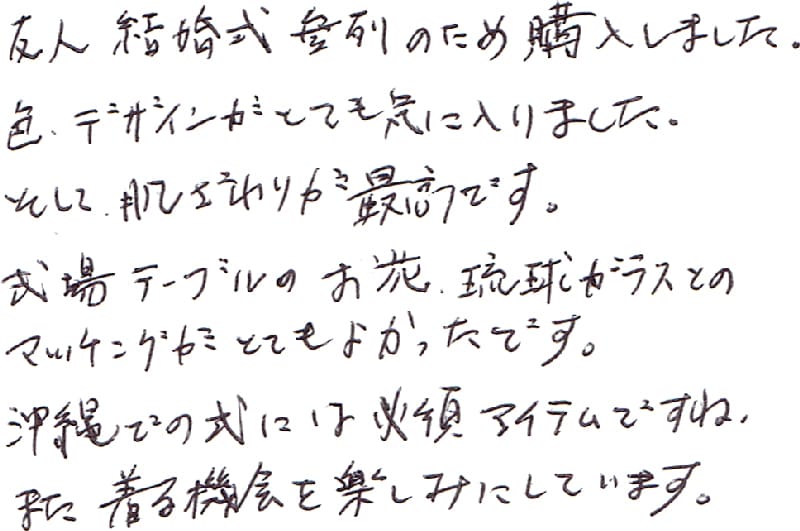 友人 結婚式 参列のため購入しました。
色、デザインがとても気に入りました。
そして、肌ざわりが最高です。
式場テーブルの お花、琉球ガラスとの
マッチングがとてもよかったです。
沖縄での式には必須アイテムですね、
また 着る機会を楽しみにしています。